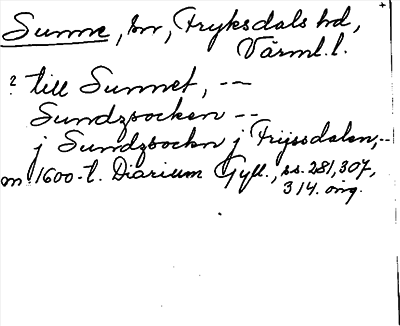 Sunne, sn, Fryksdals hd,
Värml. l.
? till Sunnet, --
Sundzsocken --
j Sundzsockn j Frijssdalen, --
m 1600-t. Diarium Gyll., ss. 281, 307,
314. orig.